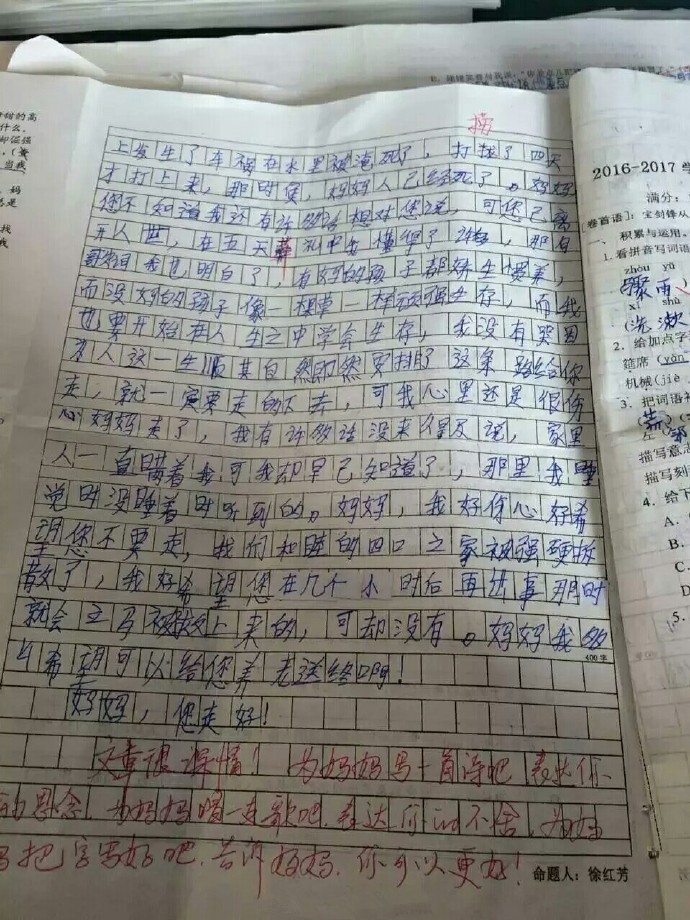 捞
上发生了车祸在水里被淹死了，打捞了四天
才打上来，那时候，妈妈人已经死了。妈妈
您不知道我还有许多话想对您说，可您已离
开人世，在五天葬礼中我懂得了许多，那
我也明白了，有妈的孩子都娇生惯养，
而没妈的孩子像一根草一样顽强生存，而我
也要开始在人生之中学会生存，我没有哭因
为人这一生顺其自然即然要排了这条路给你
走，就一定要走的下去，可我心里还是很伤
心妈妈走了，我有许多话没来得及说，家里
人一直瞒着我可我却早已知道了，那里我睡
觉时没睡着时听到的。妈妈，我好伤心好希
望您不要走，我们和睦的四口之家被强硬拆
散了，我好希望您在几个小时后再出事那时
就会立马被救上来的，可却没有。妈妈我多
么希望可以给您养老送终啊！
400字
妈妈，您走好！
文章很深情！为妈妈写一首诗吧，表达你
的思念，为妈妈唱一支歌吧，表达你的不舍，为妈
妈把字写好吧，告诉妈妈，你可以更好！
命题人：徐红芳
2016-2017学
满分：
[卷首语]：宝剑锋从
一、积累与运用。
1.看拼音写词语
zhòu yǔ
骤雨
xǐ shù
(洗漱
2.给加点字
筵席(yán
机械(jiè
3.把词语补
描写意志
描写刻
4.给下
A.
B.
C.
D
5.